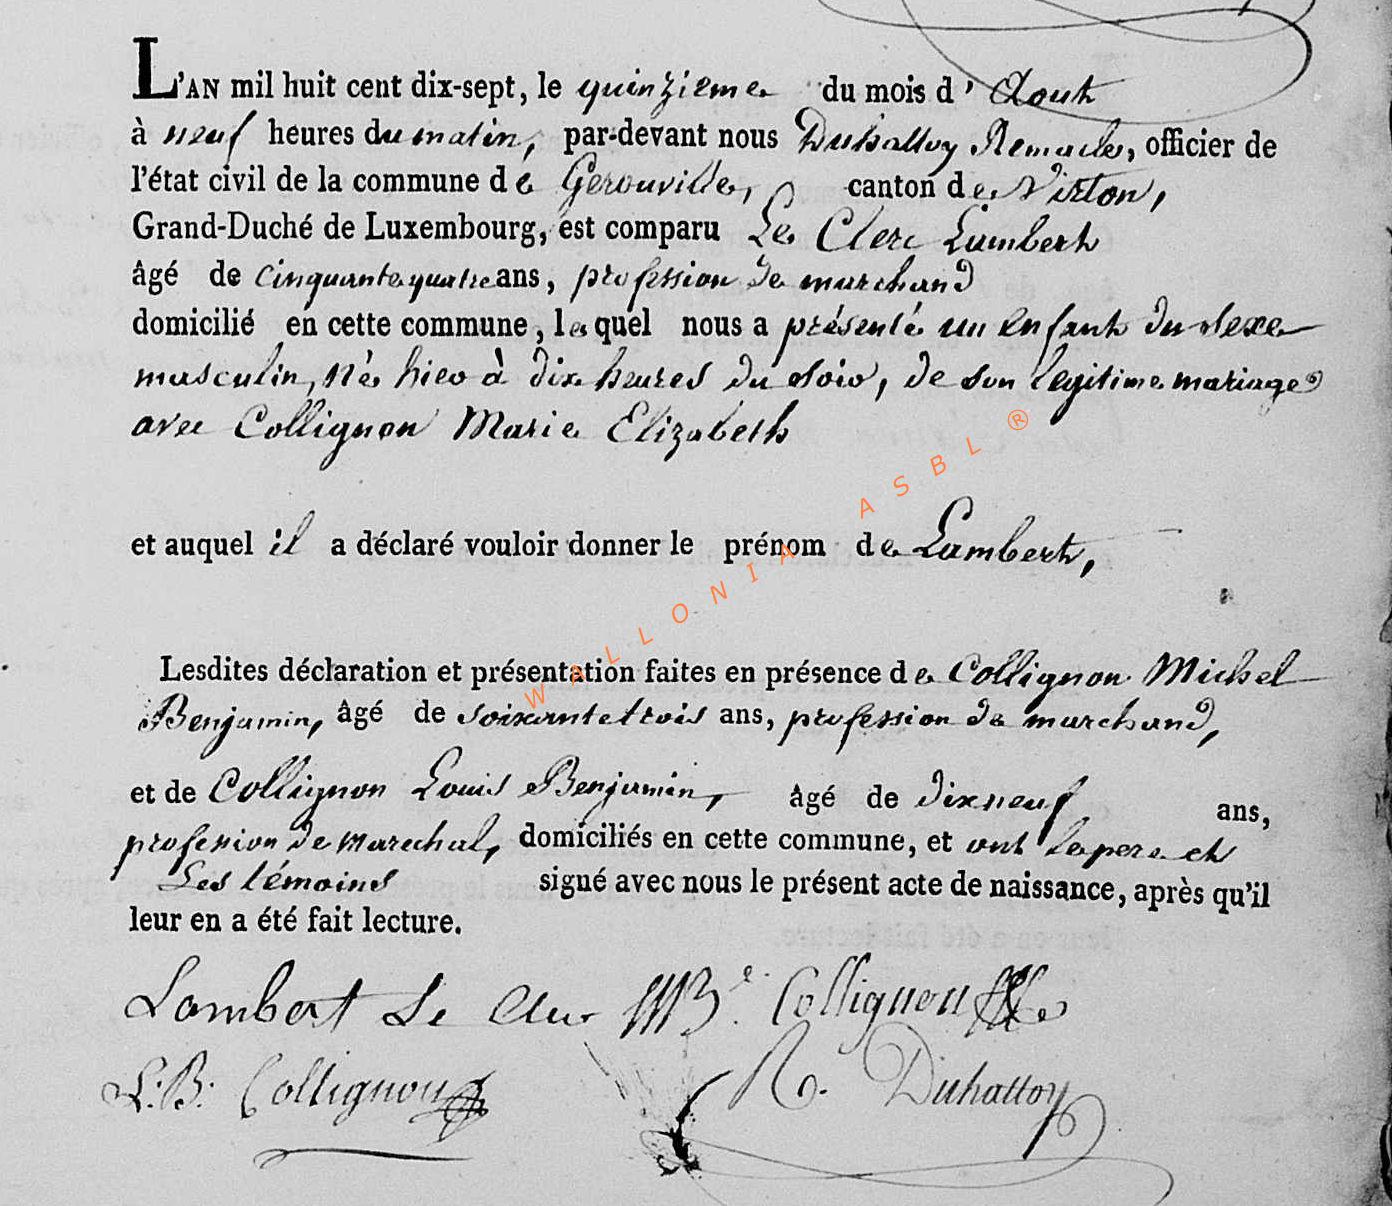 L'AN mil huit cent dix-sept, le quinzieme du mois d'Aout
à neuf heures du matin, par-devant nous Duhattoy Remacle, officier de
l'état civil de la commune de Gerouville, canton de Virton,
Grand-Duché de Luxembourg, est comparu Le Clerc Lambert
âgé de cinquante quatre ans, profession de marchand
domicilié en cette commune, lequel nous a présenté un enfant du sexe
masculin, né hier à dix heures du soir, de son legitime mariage
avec Collignon Marie Elizabeth
et auquel il a déclaré vouloir donner le prénom de Lambert,
Lesdites déclaration et présentation faites en présence de Collignon Michel
Benjamin, âgé de soixante trois ans, profession de marchand,
et de Collignon Louis Benjamin, âgé de dix neuf ans,
profession de Marechal, domiciliés en cette commune, et ont le pere et
Les témoins signé avec nous le présent acte de naissance, après qu'il
leur en a été fait lecture.
Lambert Le Clerc MB Collignon
L. B. Collignon R. Duhattoy
WALLONIA ASBL ®